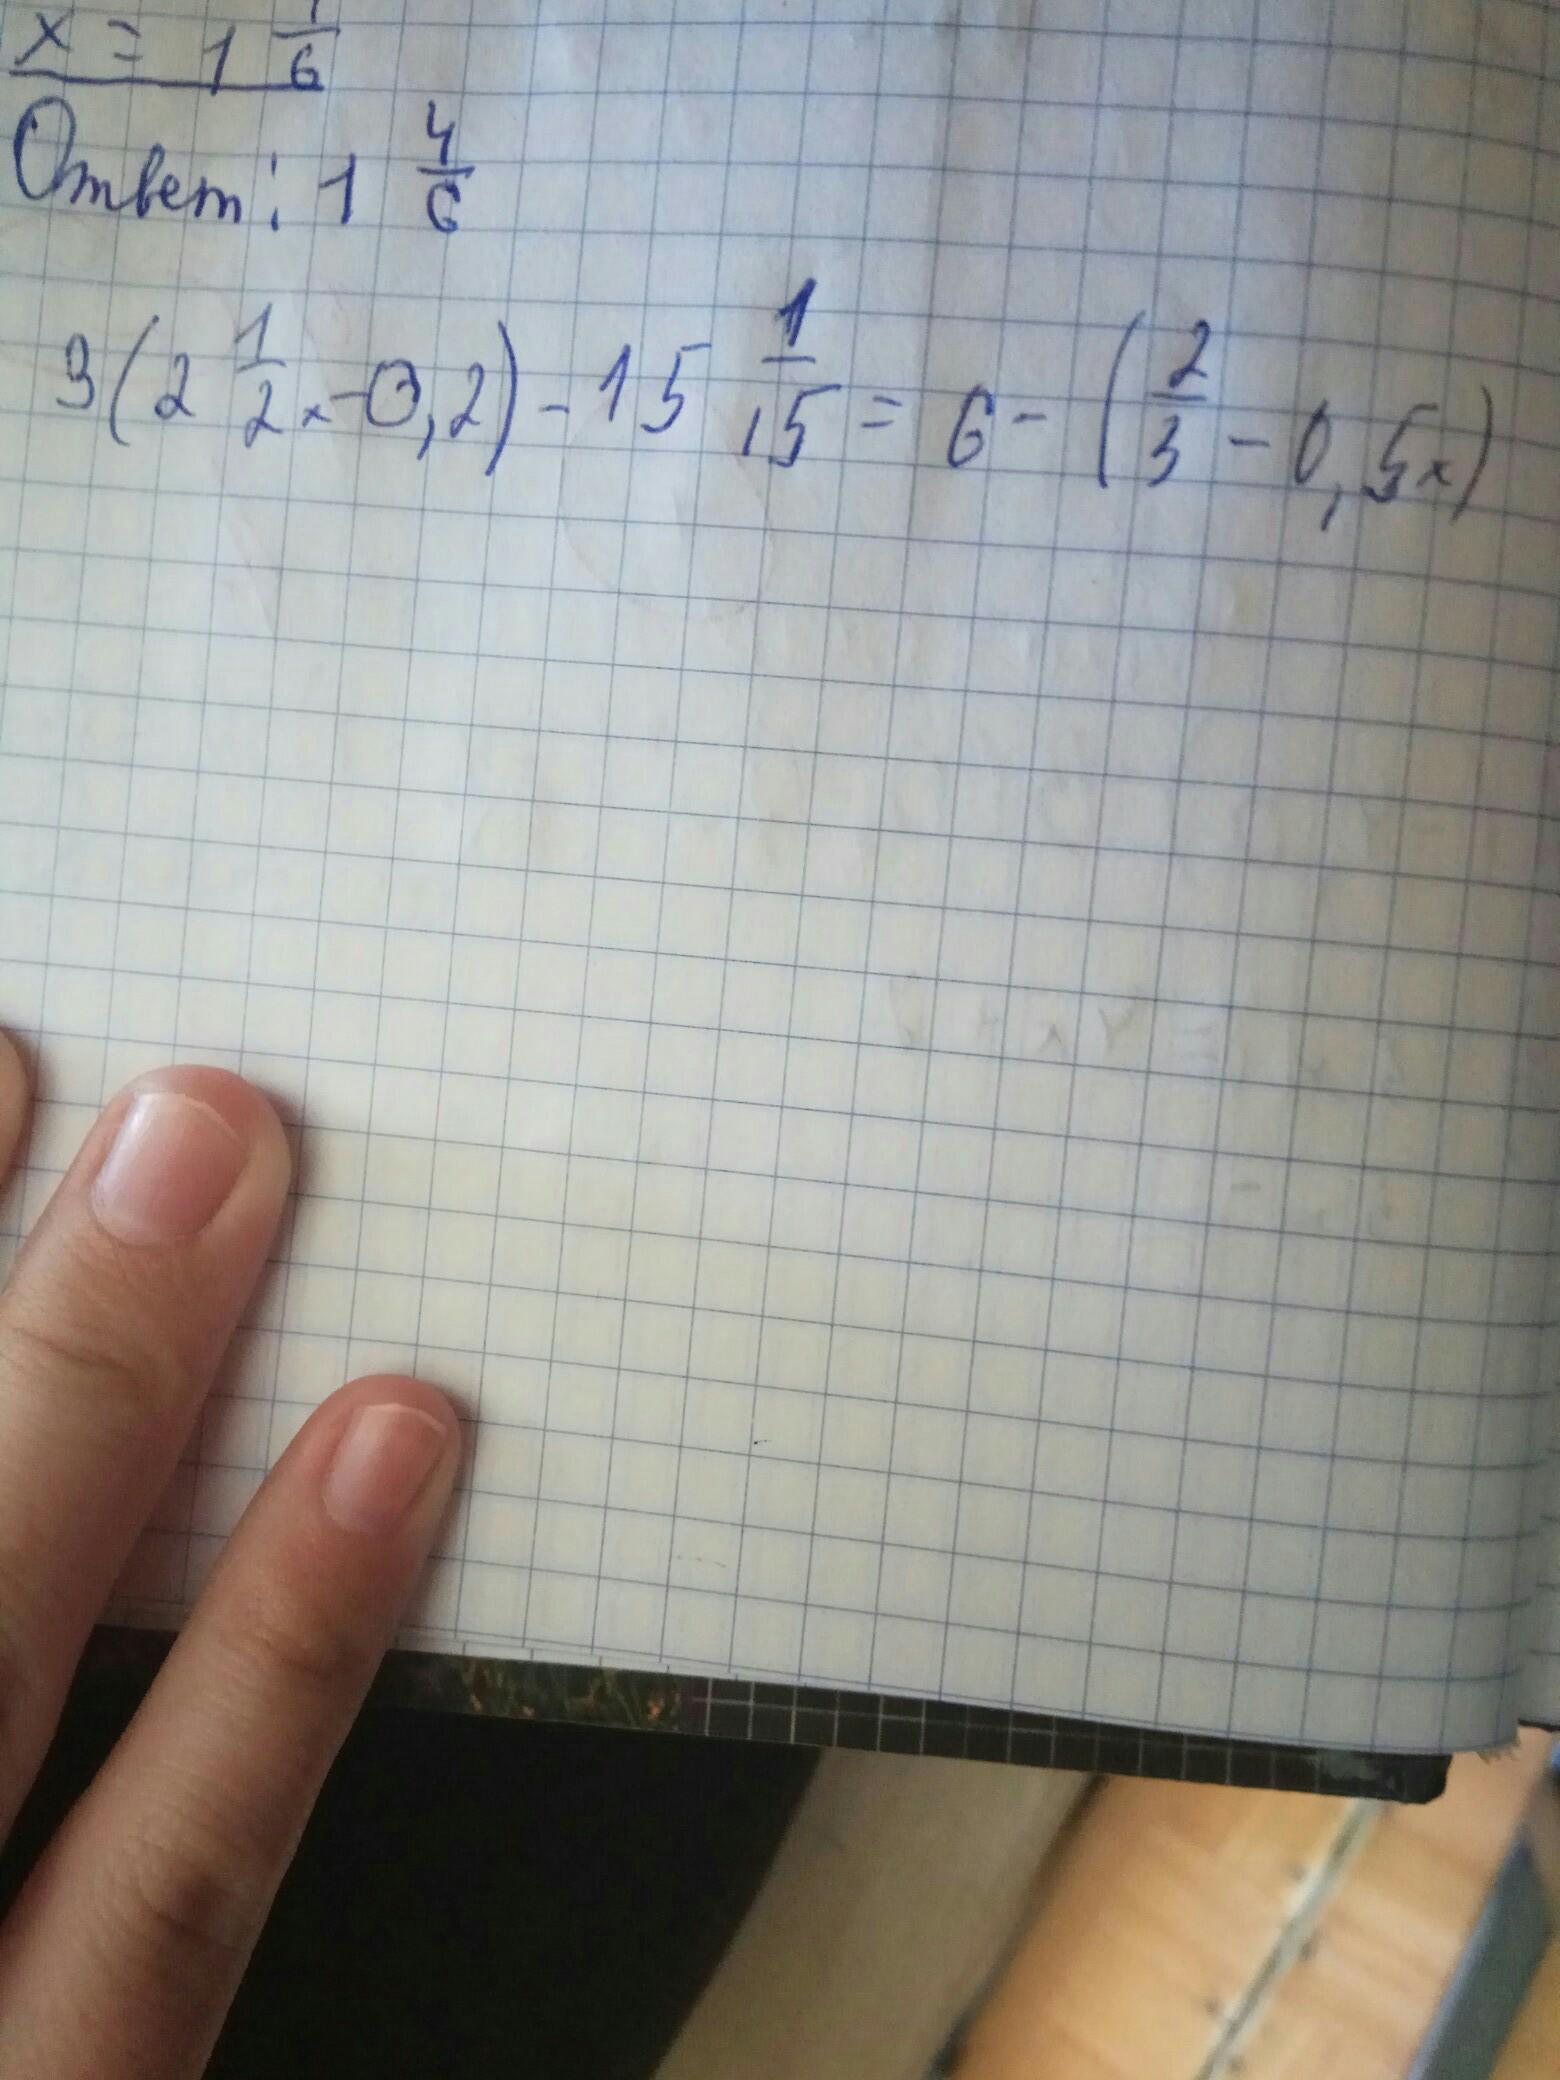 x = 1 1/6
Ответ: 1 4/6
3(2 1/2x - 0,2) - 15 1/15 = 6 - (2/3 - 0,5x)